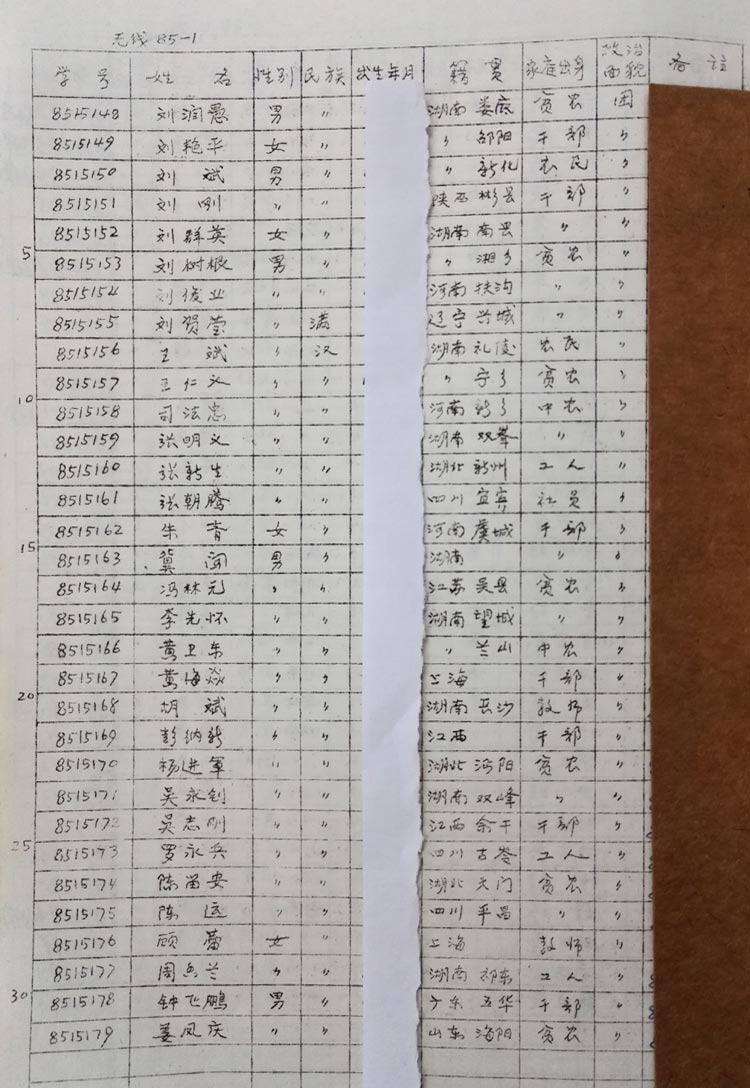 无线 85-1
学号 姓名 性别 民族 出生年月 籍贯 家庭出身 政治面貌 备注
8515148 刘润愚 男 〃 湖南 娄底 贫农 团
8515149 刘艳平 女 〃 〃 邵阳 干部 〃
8515150 刘斌 男 〃 〃 新化 农民 〃
8515151 刘刚 〃 〃 陕西 彬县 干部 〃
5 8515152 刘群英 女 〃 湖南 南县 〃 〃
8515153 刘树根 男 〃 〃 湘乡 贫农 〃
8515154 刘俊业 〃 〃 河南 扶沟 〃 〃
8515155 刘贺莹 〃 满 辽宁 兴城 〃 〃
8515156 王斌 〃 汉 湖南 礼陵 农民 〃
10 8515157 王仁义 〃 〃 〃 宁乡 贫农 〃
8515158 司法忠 〃 〃 河南 新乡 中农 〃
8515159 张明义 〃 〃 湖南 双峯 〃 〃
8515160 张新生 〃 〃 湖北 新州 工人 〃
8515161 张朝腾 〃 〃 四川 宜宾 社员 〃
15 8515162 朱青 女 〃 河南 虞城 干部 〃
8515163 冀闽 男 〃 河南 〃 〃
8515164 冯林元 〃 〃 江苏 吴县 贫农 〃
8515165 李先怀 〃 〃 湖南 望城 〃 〃
8515166 黄卫东 〃 〃 〃 兰山 中农 〃
20 8515167 黄海焱 〃 〃 上海 干部 〃
8515168 胡斌 〃 〃 湖南 长沙 教师 〃
8515169 彭纳新 〃 〃 江西 干部 〃
8515170 杨进军 〃 〃 湖北 沔阳 贫农 〃
8515171 吴永钊 〃 〃 湖南 双峰 〃 〃
25 8515172 吴志刚 〃 〃 江西 余干 干部 〃
8515173 罗永兵 〃 〃 四川 古蔺 工人 〃
8515174 陈苗安 〃 〃 湖北 天门 贫农 〃
8515175 陈运 〃 〃 四川 平昌 〃 〃
8515176 顾蕾 女 〃 上海 教师 〃
30 8515177 周兰 〃 〃 湖南 祁东 工人 〃
8515178 钟飞鹏 男 〃 广东 五华 干部 〃
8515179 姜凤庆 〃 〃 山东 海阳 贫农 〃